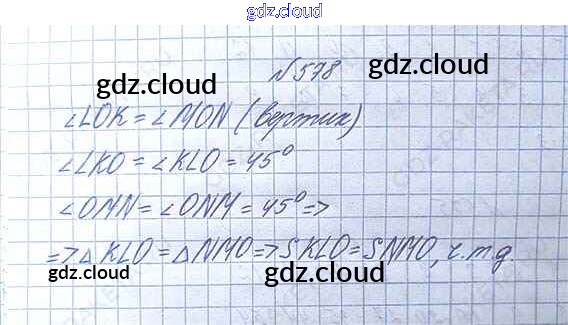 gdz.cloud
№ 578
gdz.cloud
gdz.cloud
∠LOK = ∠MON (вертик)
∠LKO = ∠KLO = 45°
∠OMN = ∠ONM = 45° =>
=> △KLO = △NMO => SKLO = SNMO, ч.т.д.
gdz.cloud
gdz.cloud
gdz.cloud